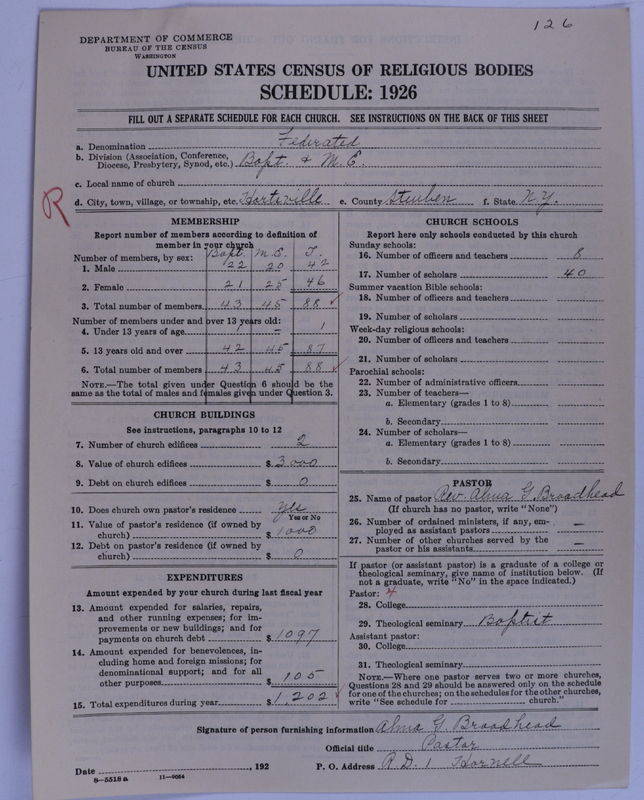 126
DEPARTMENT OF COMMERCE
BUREAU OF THE CENSUS
WASHINGTON
UNITED STATES CENSUS OF RELIGIOUS BODIES
SCHEDULE: 1926
FILL OUT A SEPARATE SCHEDULE FOR EACH CHURCH. SEE INSTRUCTIONS ON THE BACK OF THIS SHEET
a. Denomination Federated
b. Division (Association, Conference, Diocese, Presbytery, Synod, etc.) Bapt. & M.E.
c. Local name of church
R
d. City, town, village, or township, etc. Hartsville e. County Steuben f. State N.Y.
MEMBERSHIP
Report number of members according to definition of
member in your church
Bapt. M.E. T.
Number of members, by sex:
1. Male 22 20 42
2. Female 21 25 46
3. Total number of members 43 45 88
Number of members under and over 13 years old:
4. Under 13 years of age 1 – 1
5. 13 years old and over 42 45 87
6. Total number of members 43 45 88
NOTE.—The total given under Question 6 should be the
same as the total of males and females given under Question 3.
CHURCH BUILDINGS
See instructions, paragraphs 10 to 12
7. Number of church edifices 2
8. Value of church edifices $3000
9. Debt on church edifices $ 0
10. Does church own pastor's residence? yes
Yes or No
11. Value of pastor's residence (if owned by
church) $ 1000
12. Debt on pastor's residence (if owned by
church) $ 0
EXPENDITURES
Amount expended by your church during last fiscal year
13. Amount expended for salaries, repairs,
and other running expenses; for im-
provements or new buildings; and for
payments on church debt $ 1097
14. Amount expended for benevolences, in-
cluding home and foreign missions; for
denominational support; and for all
other purposes $ 105
15. Total expenditures during year $ 1,202
CHURCH SCHOOLS
Report here only schools conducted by this church
Sunday schools:
16. Number of officers and teachers 8
17. Number of scholars 40
Summer vacation Bible schools:
18. Number of officers and teachers
19. Number of scholars
Week-day religious schools:
20. Number of officers and teachers
21. Number of scholars
Parochial schools:
22. Number of administrative officers
23. Number of teachers—
a. Elementary (grades 1 to 8)
b. Secondary
24. Number of scholars—
a. Elementary (grades 1 to 8)
b. Secondary
PASTOR
25. Name of pastor Rev. Alma G. Broadhead
(If church has no pastor, write "None")
26. Number of ordained ministers, if any, em-
ployed as assistant pastors –
27. Number of other churches served by the
pastor or his assistants –
If pastor (or assistant pastor) is a graduate of a college or
theological seminary, give name of institution below. (If
not a graduate, write "No" in the space indicated.)
Pastor: 4
28. College
29. Theological seminary Baptist
Assistant pastor:
30. College
31. Theological seminary
NOTE.—Where one pastor serves two or more churches,
Questions 28 and 29 should be answered only on the schedule
for one of the churches; on the schedules for the other churches,
write "See schedule for church."
Signature of person furnishing information Alma G Broadhead
Official title Pastor
Date , 192 P. O. Address R.D. 1 Hornell
8-5518a 11-9064